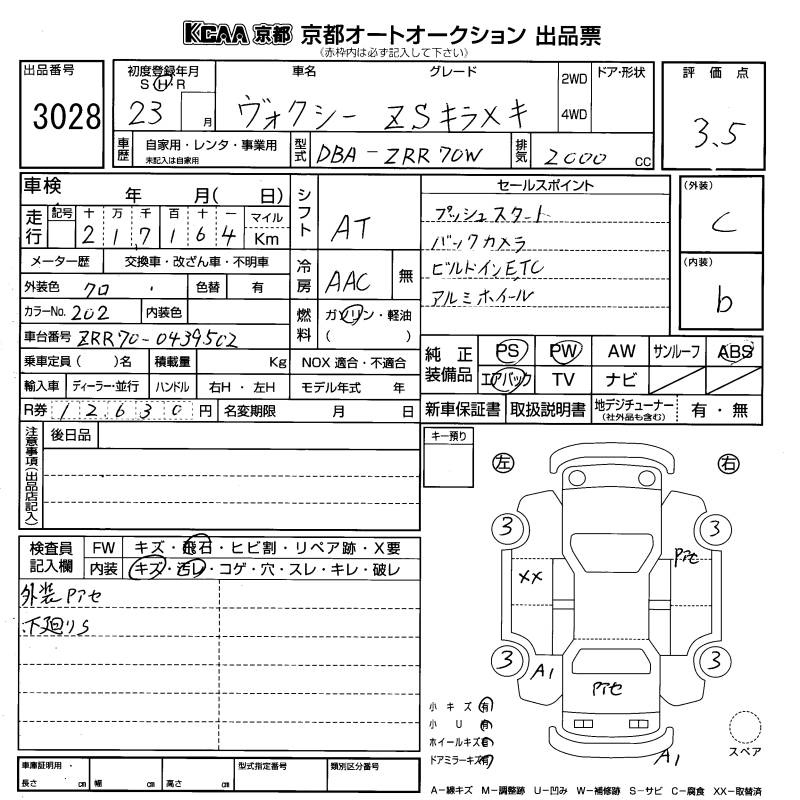 KCAA 京都 京都オートオークション 出品票
(赤枠内は必ず記入して下さい)
出品番号
3028
初度登録年月
S H R
23 月
車名
グレード
ヴォクシー ZSキラメキ
2WD
4WD
ドア・形状
評価点
3.5
車歴
自家用・レンタ・事業用
未記入は自家用
型式
DBA-ZRR70W
排気
2000 cc
車検 年 月( 日)
走行
記号 十 万 千 百 十 一 マイル
2 1 7 1 6 4 Km
シフト
AT
セールスポイント
プッシュスタート
バックカメラ
ビルドインETC
アルミホイール
(外装)
C
(内装)
b
メーター歴 交換車・改ざん車・不明車
外装色 クロ 色替 有
カラーNo. 202 内装色
車台番号 ZRR70-0439502
冷房
AAC 無
燃料
ガソリン・軽油
( )
乗車定員( )名 積載量 Kg NOX 適合・不適合
輸入車 ディーラー・並行 ハンドル 右H・左H モデル年式 年
R券 12630 円 名変期限 月 日
純正装備品
PS PW AW サンルーフ ABS
エアバック TV ナビ
新車保証書 取扱説明書 地デジチューナー (社外品も含む) 有・無
注意事項(出品店記入)
後日品
キー預り
左
右
検査員記入欄
FW キズ・飛石・ヒビ割・リペア跡・X要
内装 キズ・汚レ・コゲ・穴・スレ・キレ・破レ
外装Pアセ
下廻りS
3
3
Pアセ
XX
3
3
A1
Pアセ
A1
小キズ 有
小U 有
ホイールキズ 有
ドアミラーキズ 有
スペア
車庫証明用・
長さ cm 幅 cm 高さ cm
型式指定番号
類別区分番号
A−線キズ M−調整跡 U−凹み W−補修跡 S−サビ C−腐食 XX−取替済